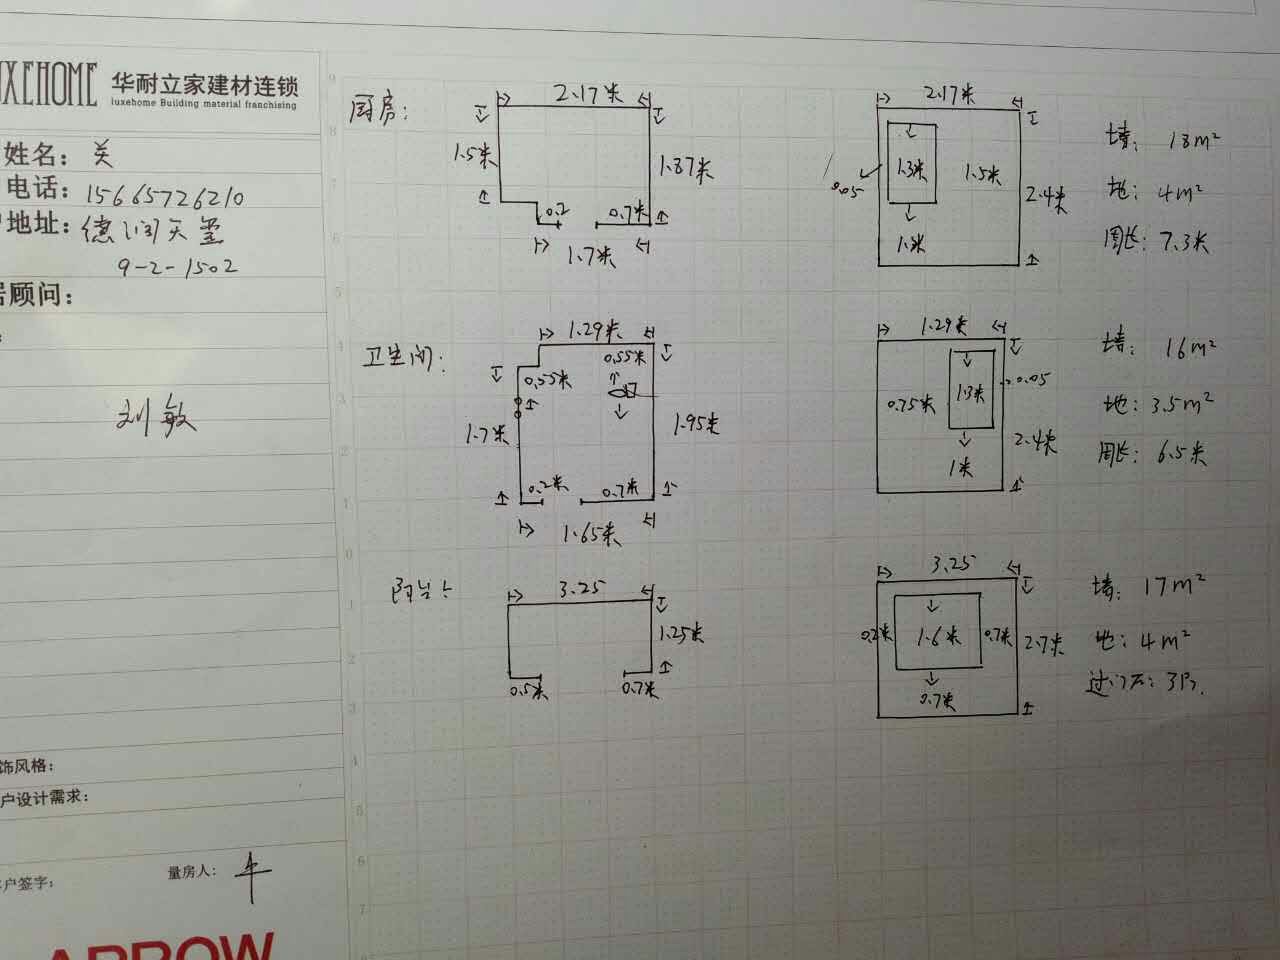 UXEHOME 华耐立家建材连锁
luxehome Building material franchising
姓名: 关
电话: 15665726210
户地址: 德润天玺
9-2-1502
居顾问:
刘敏
饰风格:
户设计需求:
客户签字:
量房人: 牛
ARROW
厨房:
2.17米
1.5米
1.87米
0.2
0.7米
1.7米
2.17米
1.3米
1.5米
0.05
2.4米
墙: 18m²
地: 4m²
周长: 7.3米
卫生间:
1.29米
0.55米
0.55米
1.7米
1.95米
0.2米
0.7米
1.65米
1.29米
0.75米
1.3米
0.05
2.4米
1米
墙: 16m²
地: 3.5m²
周长: 6.5米
阳台:
3.25
1.25米
0.5米
0.7米
3.25
0.2米
1.6米
0.7米
2.7米
0.7米
墙: 17m²
地: 4m²
过门石: 3片.